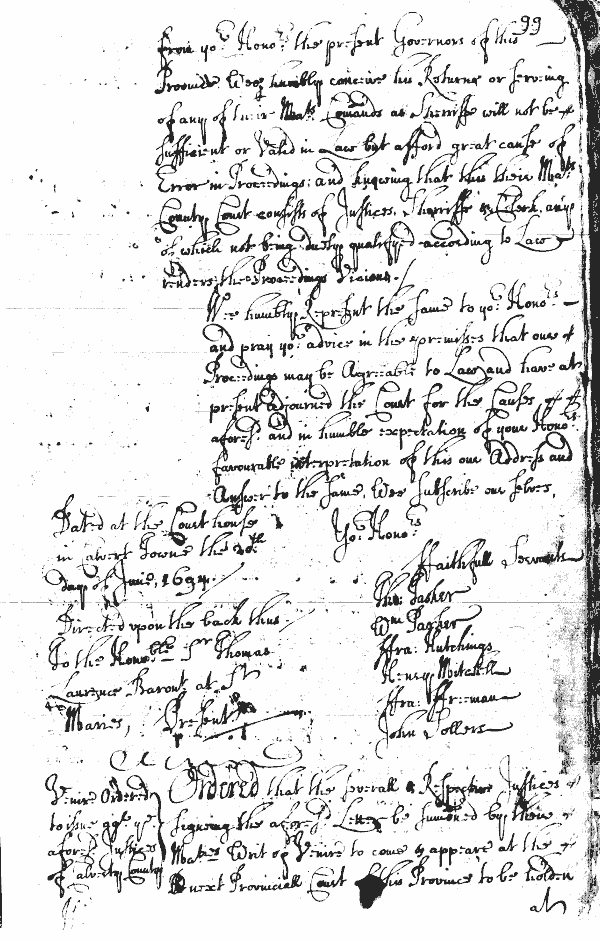 99
from yor Honors the present Governors of this
Province Wee humbly conceive his Returne or serving
of any of their Mats Comands as Sherriffe will not be
sufficient or Valid in Law but afford great cause of
Error in Proceedings; and knowing that this their Mats
County Court consists of Justices, Sherriffe & Clerk, any
of which not being duely qualifyed according to Law
renders the Proceedings Vicious.
Wee humbly Represent the same to yor Honors
and pray yor advice in the premisses that our
Proceedings may be Agreeable to Law and have at
present Adjourned the Court for the Causes
aforesd and in humble expectation of your Honors
favourable interpretation of this our Address and
Answer to the same, Wee subscribe our selves,
Dated at the Court house
in Calvert Towne the
day of June, 1694
Yor Honors
ffaithfull Servants
Tho: Tasker
Wm Parker
ffra: Hutchings
Henry Mitchell
ffra: ffreeman
John Sollers
Directed upon the back thus
To the Honoble Sr Thomas
Laurence Baront at St
Maries, Present
Venire Ordered
to issue agt ye
aforesd Justices
of Calvert County
Ordered that the severall & Respective Justices
signing the aforesd Letter be sumoned by their
Maties Writ of Venire to come & appeare at the
next Provinciall Court of this Province to be holden
at